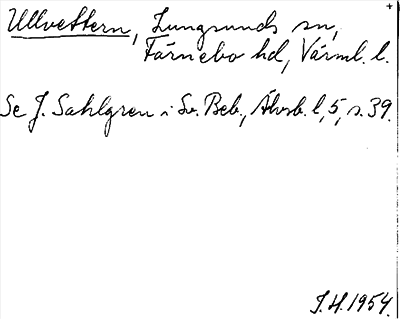 Ullvettern, Lungsunds sn,
Färnebo hd, Värml. l.
Se J. Sahlgren i Sv. Beb., Älvsb. l, 5, s. 39.
J.H. 1954.